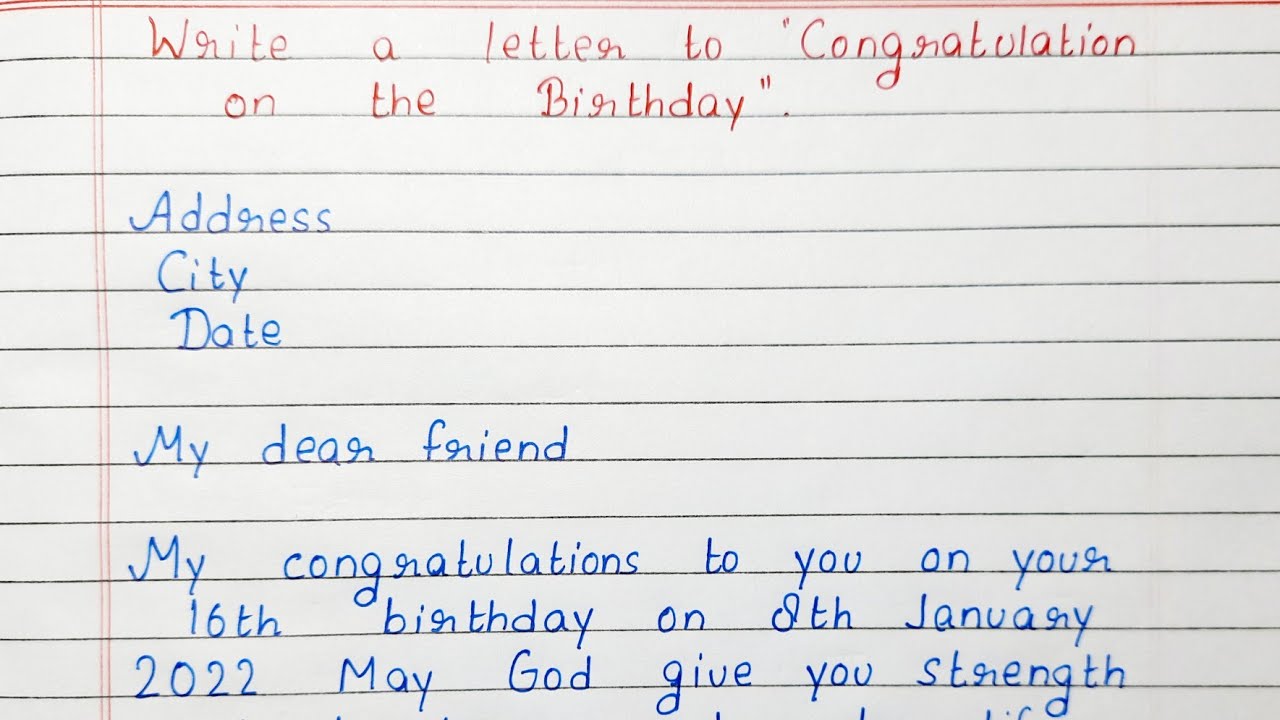 Write a letter to "Congratulation
on the Birthday".
Address
City
Date
My dear friend
My congratulations to you on your
16th birthday on 8th January
2022 May God give you strength